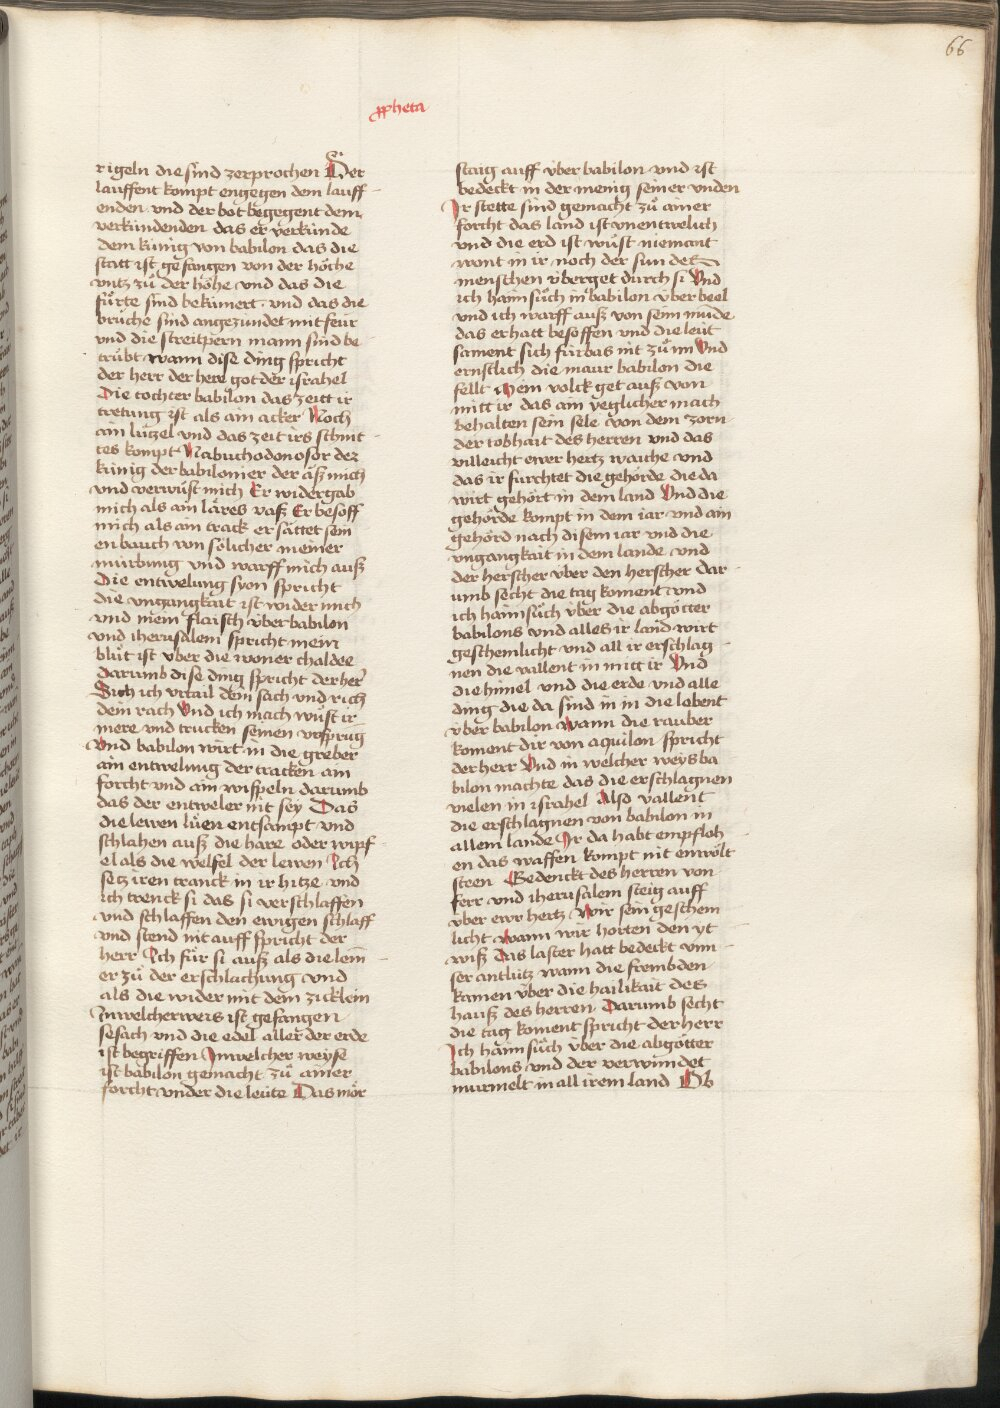 66
ꝓpheta
rigeln die sind zerprochen Der
lauffent kompt engegen dem lauff-
enden vnd der bot begegent dem
verkündenden das er verkünde
dem künig von babilon das die
statt ist gefangen von der höche
vntz zů der höhe vnd das die
fürte sind bekümert. vnd das die
brüche sind angezundet mit feür
vnd die streitpern mann sind be
trübt wann dise ding spricht
der herr der here got der israhel
Die tochter babilon das zeitt ir
tretung ist als ain acker Noch
ain lützel vnd das zeit irs schnit-
tes kompt Nabuchodonosor dez
künig der babilonier der äß mich
vnd verwüst mich Er widergab
mich als ain läres vaß Er besoff
mich als ain track er sättet sein
en bauch von sölicher meiner
mürbung vnd warff mich auß
Die entwelung syon spricht
die vngangkait ist wider mich
vnd mein flaisch über babilon
vnd iherusalem spricht mein
blůt ist über die woner chaldee
Darumb dise ding spricht der her
Sich ich vrtail dein sach vnd rich
dein rach Vnd ich mach wüst ir-
mere vnd trucken seinen vrsprūg
Vnd babilon wirt in die greber
ain entwelung der tracken ain
forcht vnd ain wispeln darumb
das der entweler nit sey Das
die lewen lüen entsampt vnd
schlahen auß die häre oder wipf-
el als die welfel der lewen Ich
setz iren tranck in ir hitze vnd
ich trenck si das si verschlaffen
vnd schlaffen den ewigen schlaff
vnd stend nit auff spricht der
herr Ich für si auß als die lem-
er zů der erschlachung vnd
als die wider mit dem zicklein
Inwelcherweis ist gefangen
sesach vnd die edel aller der erde
ist begriffen Inwelcher weyse
ist babilon gemacht zů ainer
forcht vnder die leüte Das mör
staig auff über babilon vnd ist
bedeckt in der menig seiner vnden
Ir stette sind gemacht zů ainer
forcht das land ist vnentwelich
vnd die erd ist wüst niemant
wont in ir noch der sun dez
menschen überget durch si Vnd
ich haimsůch in babilon über beel
vnd ich warff auß von seim munde
das er hatt besoffen vnd die leüt
sament sich fürbas nit zů im Vnd
ernstlich die maur babilon die
fellt Mein volck get auß von
mitt ir das ain yeglicher mach
behalten sein sele von dem zorn
der tobhait des herren vnd das
villeicht ewer hertz waiche vnd
das ir fürchtet die gehörde die da
wirt gehört in dem land Vnd die
gehörde kompt in dem iar vnd ain
gehörd nach disem iar vnd die
vngangkait in dem lande vnd
der herscher über den herscher Dar-
umb secht die tag koment vnd
ich haimsůch über die abgötter
babilons vnd alles ir land wirt
geschemlicht vnd all ir erschlag-
nen die vallent in mitt ir Vnd
die himel vnd die erde vnd alle
ding die da sind in in die lobent
über babilon wann die rauber
koment dir von aquilon spricht
der herr Vnd in welcher weys ba
bilon machte das die erschlagnen
vielen in israhel Also vallent
die erschlagnen von babilon in
allem lande Ir da habt empfloh-
en das waffen kompt nit enwölt
steen Bedenckt des herren von
ferr vnd iherusalem steig auff
über ewr hertz Wir sein geschem-
licht wann wir horten den yt-
wiß Das laster hatt bedeckt vnn-
ser antlütz wann die frembden
kamen über die hailikait des
hauß des herren Darumb secht
die tag koment spricht der herr
Ich haimsůch über die abgötter
babilons vnd der verwundet
murmelt in all irem land Ob